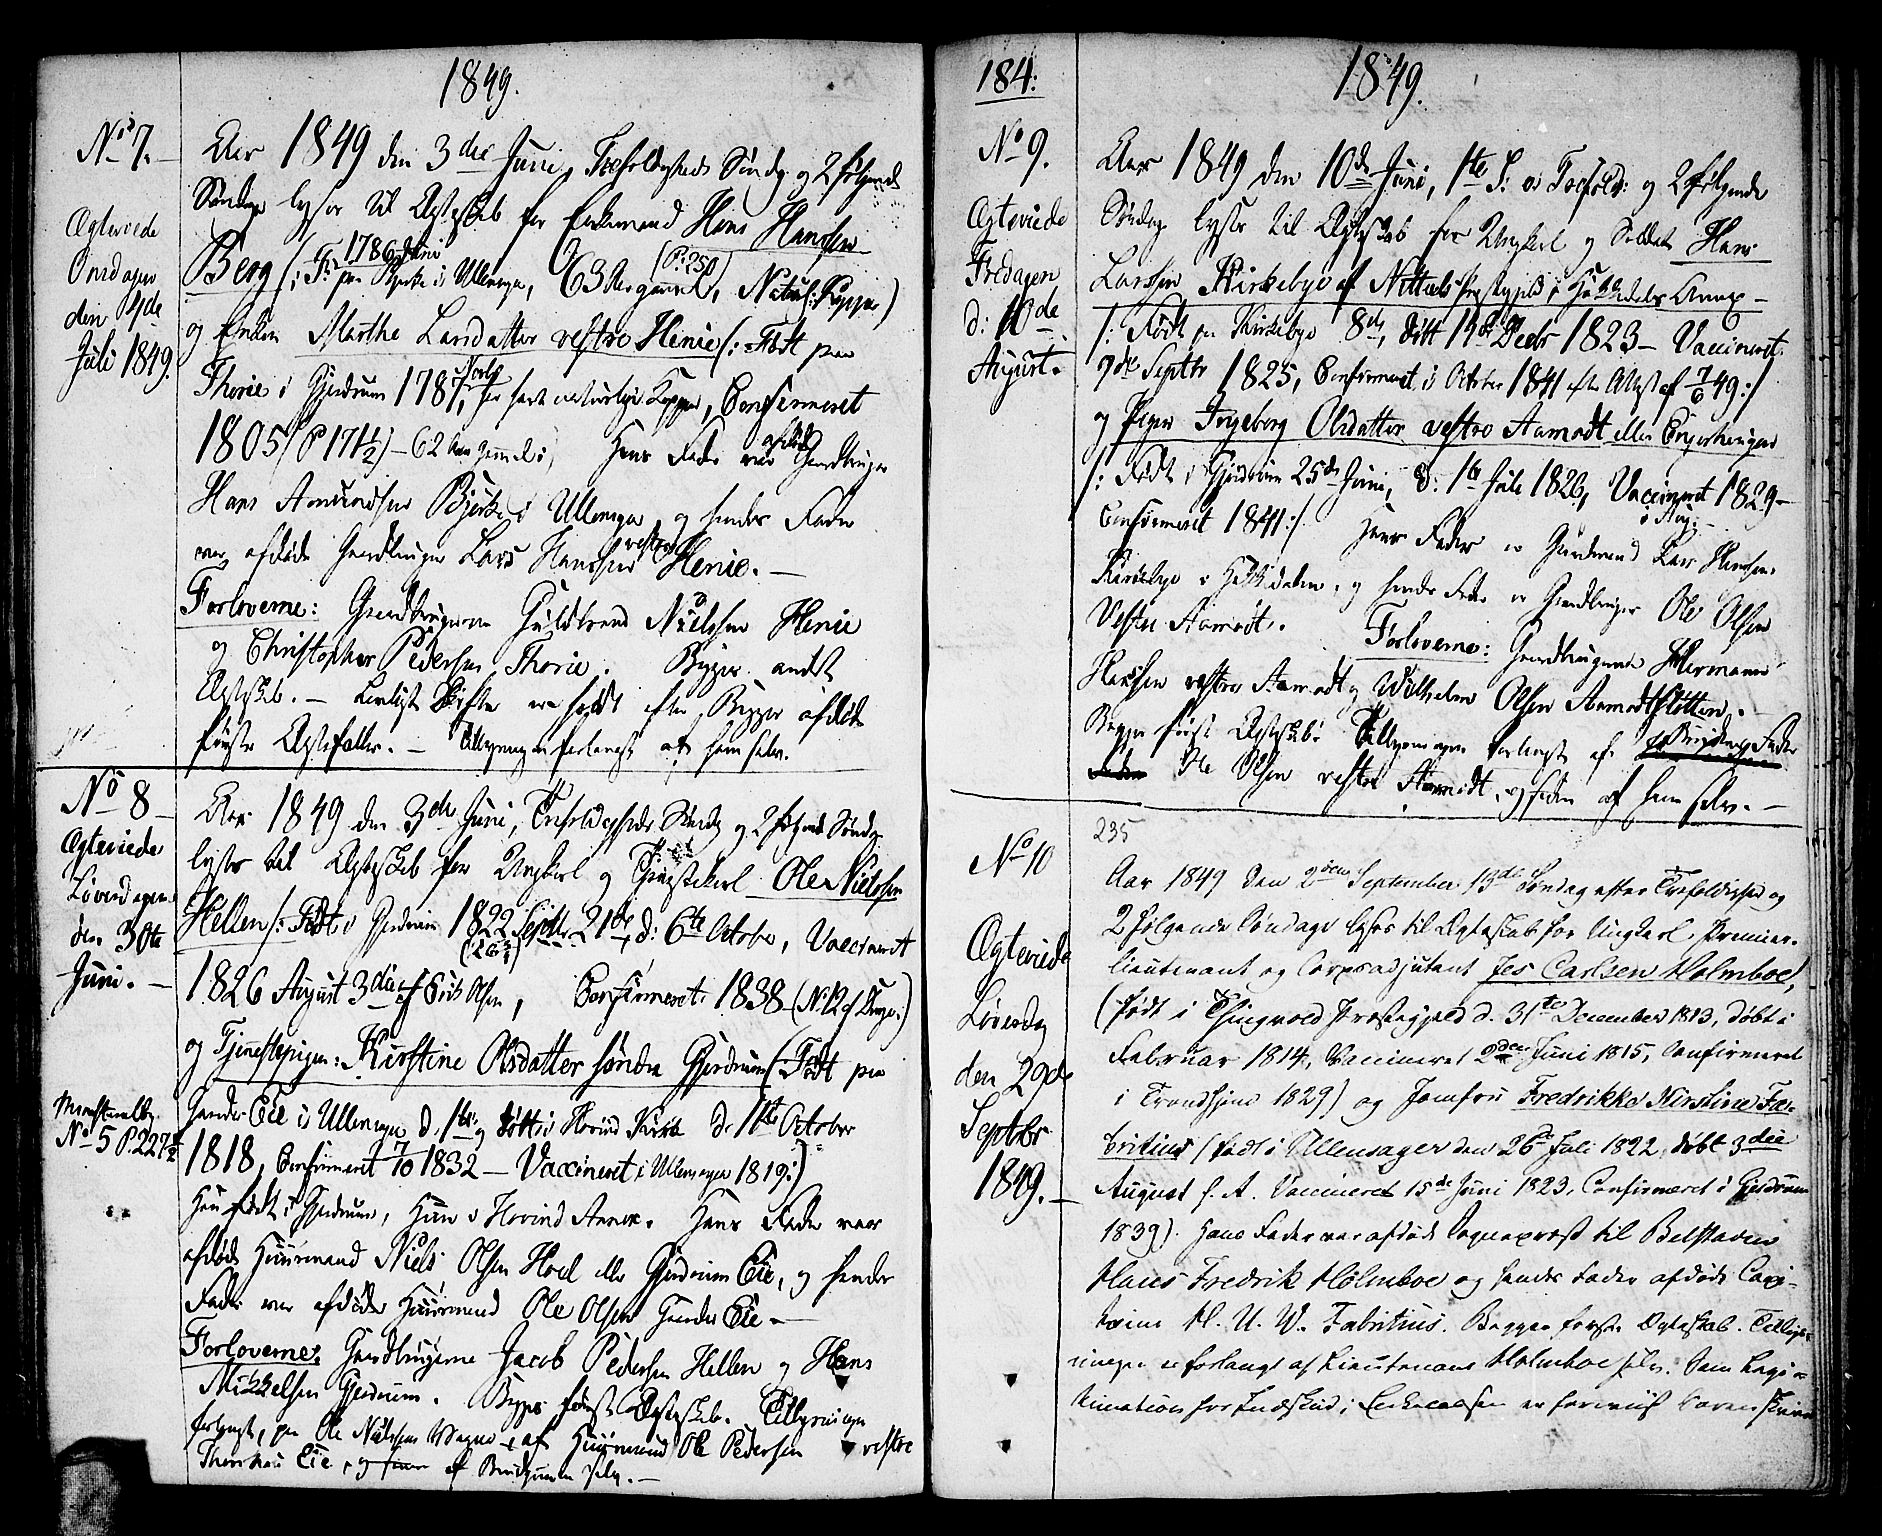 1849.
No 7.
Ægteviede
Onsdagen
den 4de
Juli 1849.
Aar 1849 den 3die Juni, Trefoldigheds Søndag og 2 følgende
Søndage lyses til Ægteskab for Enkemand Hans Hanssen
Berg (: F: 1786 Juni paa Bjerke i Ullensager, 63 Aar gammel, (P: 250) Naturl: Kopper)
og Enken Marthe Larsdatter vestre Henie (: Født paa
Thorie i Gjerdrum 1787, har havt naturlige Kopper, Confirmeret
1805 (P 171½) – 62 Aar gammel) Hans Fader var afdøde Gaardbruger
Hans Amundsen Bjerke i Ullensager, og hendes Fader
var afdøde Gaardbruger Lars Hanssen vestre Henie. –
Forloverne: Gaardbrugerne Guldbrand Nielsen Henie
og Christopher Pedersen Thorie. Begges andet
Ægteskab. – Lovligt Skifte er holdt efter Begges afdøde
første Ægtefæller. – Tillysningen forlangt af ham selv.
No 8
Ægteviede
Løverdagen
den 30te
Juni. –
No 5 P. 227½
Aar 1849 den 3die Juni, Trefoldigheds Søndag og 2 følgende Søndage
lyses til Ægteskab for Ungkarl og Tjenestekarl Ole Nielssen
Hellen (: Født i Gjerdrum 1822 Septbr 21de, d: 6te October, Vaccineret
1826 August 3die af Erik Olsen, Confirmeret 1838 (No 12 af Drenge.)
og Tjenestepigen: Kirstine Olsdatter søndre Gjerdrum (Født paa
Hender Eie i Ullensager d. 1te og døbt i Hovind Kirke d. 11te October
1818, Confirmeret 7/10 1832 – Vaccineret i Ullensager 1819:)
Han født i Gjerdrum, Hun i Hovind Annex. Hans Fader var
afdøde Huusmand Niels Olsen Hoel eller Gjerdrum Eie, og hendes
Fader var afdøde Huusmand Ole Olsen Hender Eie. –
Forloverne: Gaardbrugerne Jacob Pedersen Hellen og Hans
Mikkelsen Gjerdrum. Begges første Ægteskab. Tillysningen
forlangt, paa Ole Nielsens Vegne, af Huusmand Ole Pedersen vestre
Eie, af Brudgommen selv. –
184:
1849.
No 9.
Ægteviede
Fredagen
d: 10de
August.
Aar 1849 den 10de Juni, 1te S. e: Trefold: og 2 følgende
Søndage lyses til Ægteskab for Ungkarl og Soldat Hans
Larssen Kirkebye af Nittedals Præstegjeld i Hakkedals Annex –
/: Født paa Kirkebye 8de, døbt 19de Decbr 1823 – Vaccineret
7de Septbr 1825, Confirmeret i October 1841 efter Attest af 7/6 49:/
og Pigen Ingeborg Olsdatter vestre Aamodt eller
/: Født i Gjerdrum 25de Juni, d: 16 Juli 1826, Vaccineret 1829 –
Confirmeret 1841:/ Hans Fader er Gaardmand Lars Hanssen
Kirkebye i Hakkedalen, og hendes Fader er Gaardbruger Ole Olsen
Vestre Aamodt. Forloverne: Gaardbrugerne Hermann
Hanssen vestre Aamodt og Wilhelm Olsen Aamodtslotten. –
Begges første Ægteskab. Tillysningen forlangt af Brudens Fader
Ole Olsen vestre Aamodt, og siden af ham selv. –
No 10
Ægteviede
Løverdag
den 29de
Septbr
1849. –
235
Aar 1849 den 2den September 13de Søndag efter Trefoldighed og
2 følgende Søndage lyses til Ægteskab for Ungkarl Premier-
lieutenant og Corpsadjutant Jes Carlsen Holmboe,
(født i Thingvold Præstegjeld d. 31te December 1813, døbt i
Februar 1814, Vaccineret 2den Juni 1815, Confirmeret
i Trondhjem 1829) og Jomfru Fredrikke Kirstine Fa-
britius (født i Ullensager den 26de Juli 1822, døbt 3die
August s. A. Vaccineret 15de Juni 1823, Confirmeret i Gjerdrum
1839). Hans Fader var afdøde Sognepræst til Belstaden
Hans Fredrik Holmboe og hendes Fader afdøde Capi-
taine H. U. W. Fabritius. Begges første Ægteskab. Tillys-
ningen er forlangt af Lieutenant Holmboe selv. Som Legi-
timation for Indskud i Enkecassen er foreviist